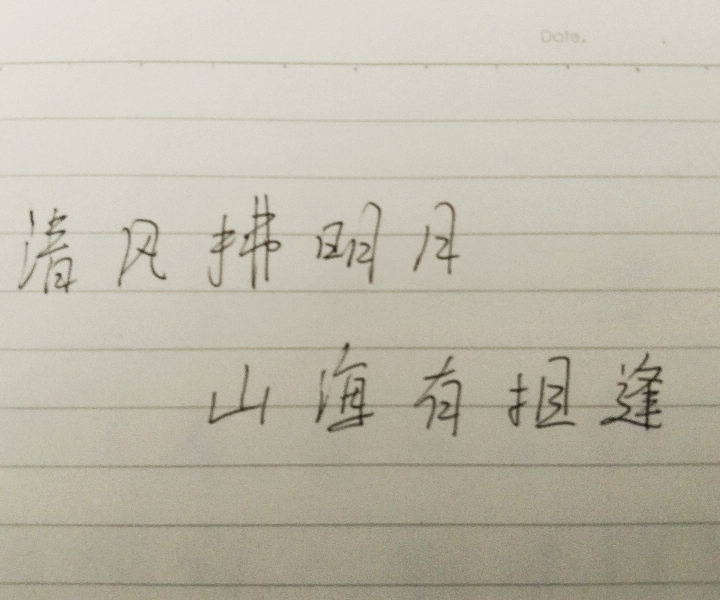 Date.
清风拂明月
山海有相逢